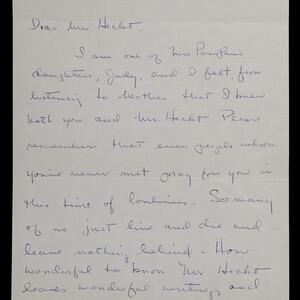 Dear Mrs Hecht,
I am one of Mrs
daughters, Judy, and I felt, from
listening to Mother that I knew
both you and Mr. Hecht Please
remember that even people whom
you've never met pray for you in
this time of lonliness. So many
of us just live and die and
leave nothing behind - How
wonderful to know Mr Hecht
leaves wonderful writings and